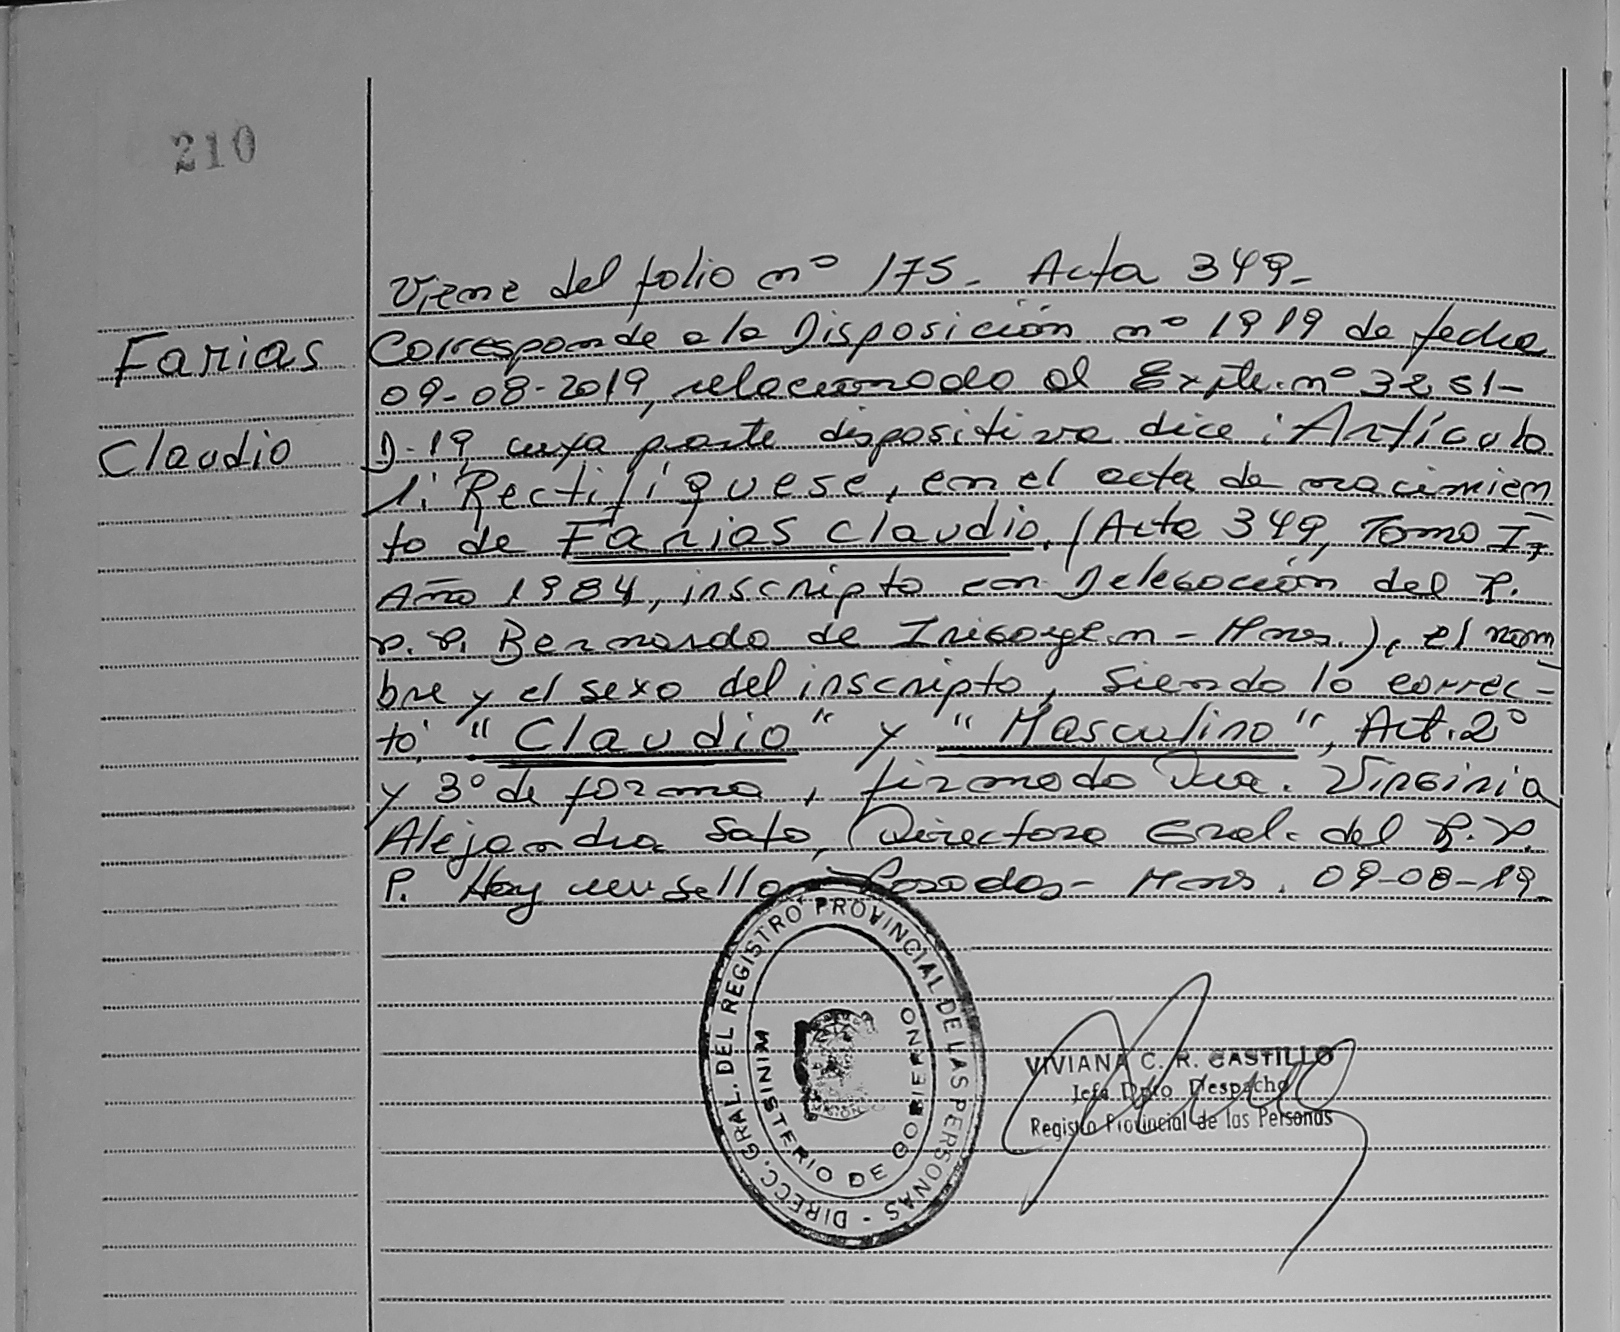 210
Viene del folio nº 175- Acta 349-
Farias
Corresponde a la Disposición nº 1919 de fecha
09-08-2019, relacionado al Expte. nº 3251-
Claudio
D-19, cuya parte dispositiva dice: Artículo
1: Rectifíquese, en el acta de nacimien
to de Farias Claudio, (Acta 349, Tomo I,
Año 1984, inscripto en Delegación del R.
P. P. Bernardo de Irigoyen - Mnes.), el nom
bre y el sexo del inscripto, siendo lo correc-
to: "Claudio" y "Masculino", Art. 2º
y 3º de forma, firmado Dra. Virginia
Alejandra Sato, Directora Gral. del R.P.
P. Hay un sello. Posadas - Mnes. 09-08-19-
DIRECC. GRAL. DEL REGISTRO PROVINCIAL DE LAS PERSONAS -
MINISTERIO DE GOBIERNO
VIVIANA C. R. CASTILLO
Jefa Dpto Despacho
Registro Provincial de las Personas